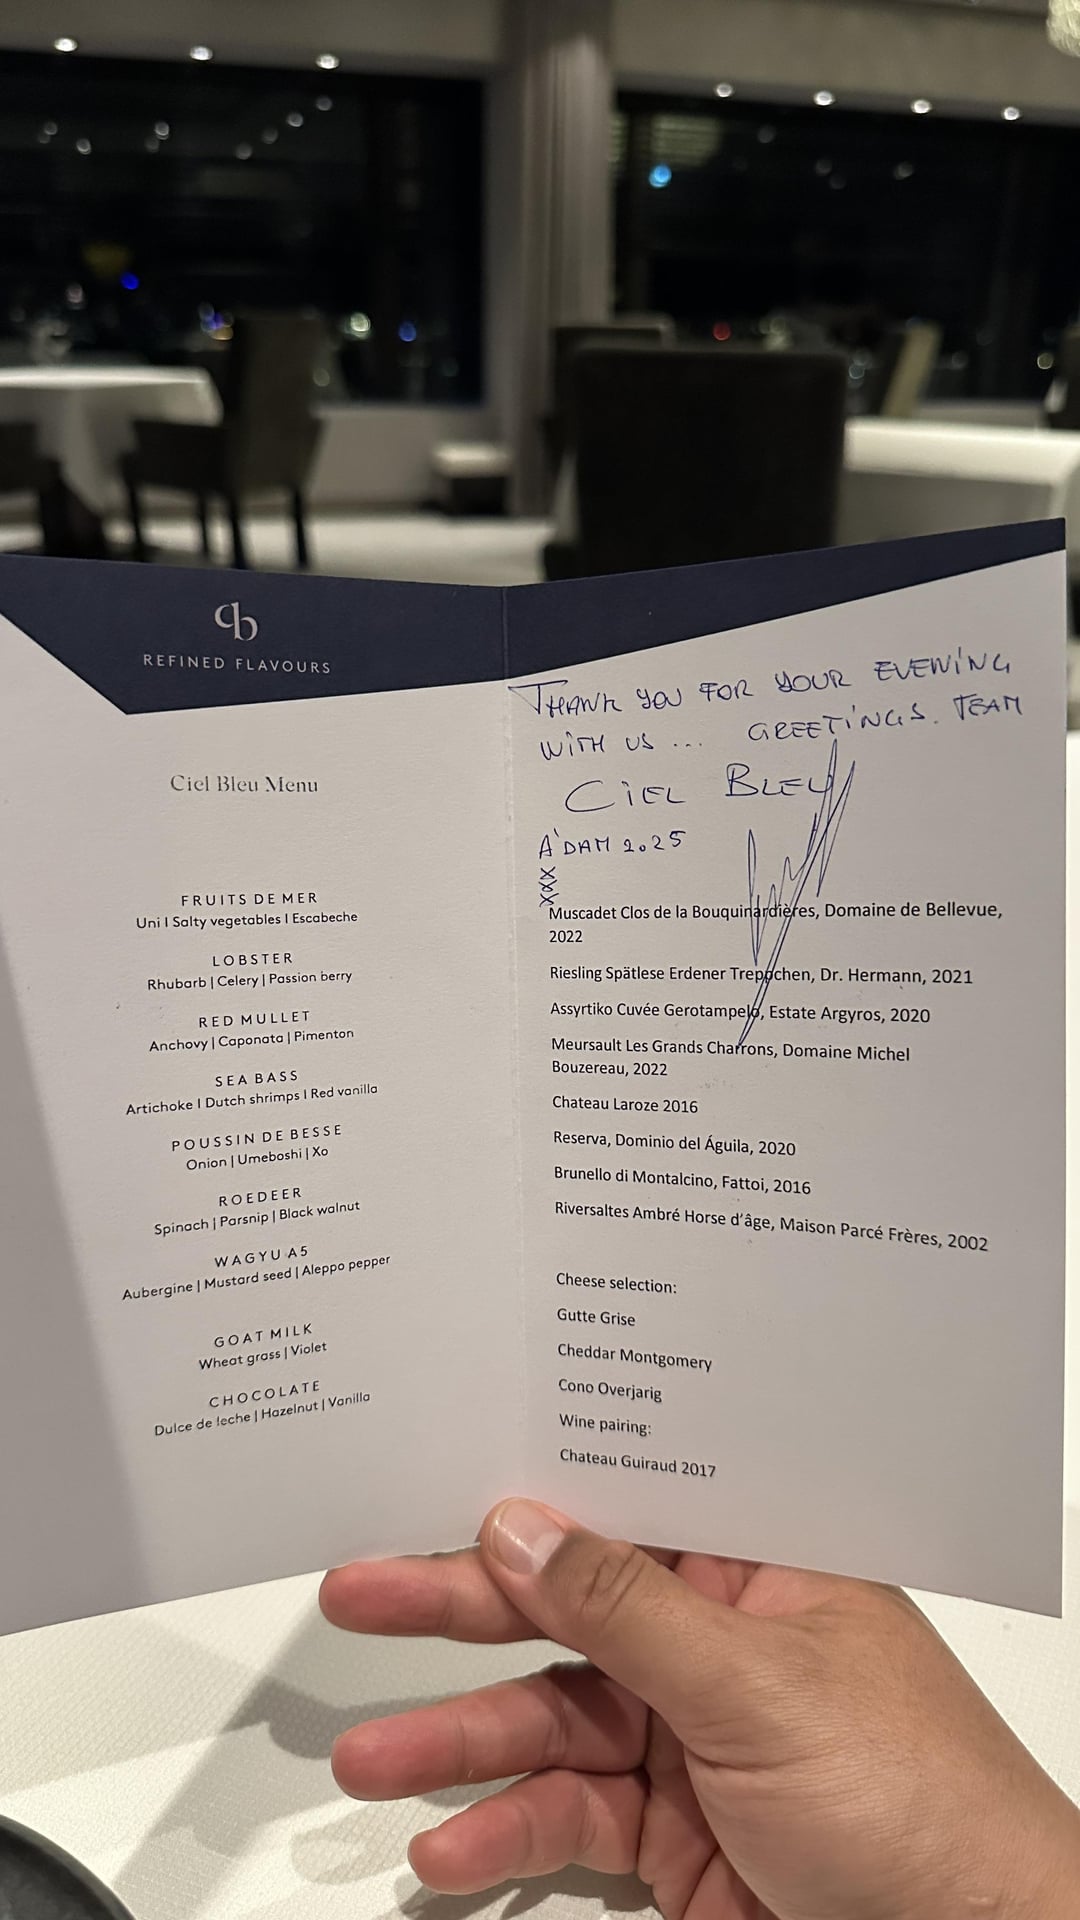 cb
REFINED FLAVOURS
Ciel Bleu Menu
FRUITS DE MER
Uni | Salty vegetables | Escabeche
LOBSTER
Rhubarb | Celery | Passion berry
RED MULLET
Anchovy | Caponata | Pimenton
SEA BASS
Artichoke | Dutch shrimps | Red vanilla
POUSSIN DE BESSE
Onion | Umeboshi | Xo
ROEDEER
Spinach | Parsnip | Black walnut
WAGYU A5
Aubergine | Mustard seed | Aleppo pepper
GOAT MILK
Wheat grass | Violet
CHOCOLATE
Dulce de leche | Hazelnut | Vanilla
THANK YOU FOR YOUR EVENING
WITH US ... GREETINGS. TEAM
CIEL BLEU
A'DAM 2025
XXX
Muscadet Clos de la Bouquinardières, Domaine de Bellevue,
2022
Riesling Spätlese Erdener Treppchen, Dr. Hermann, 2021
Assyrtiko Cuvée Gerotampelo, Estate Argyros, 2020
Meursault Les Grands Charrons, Domaine Michel
Bouzereau, 2022
Chateau Laroze 2016
Reserva, Dominio del Águila, 2020
Brunello di Montalcino, Fattoi, 2016
Riversaltes Ambré Horse d'âge, Maison Parcé Frères, 2002
Cheese selection:
Gutte Grise
Cheddar Montgomery
Cono Overjarig
Wine pairing:
Chateau Guiraud 2017